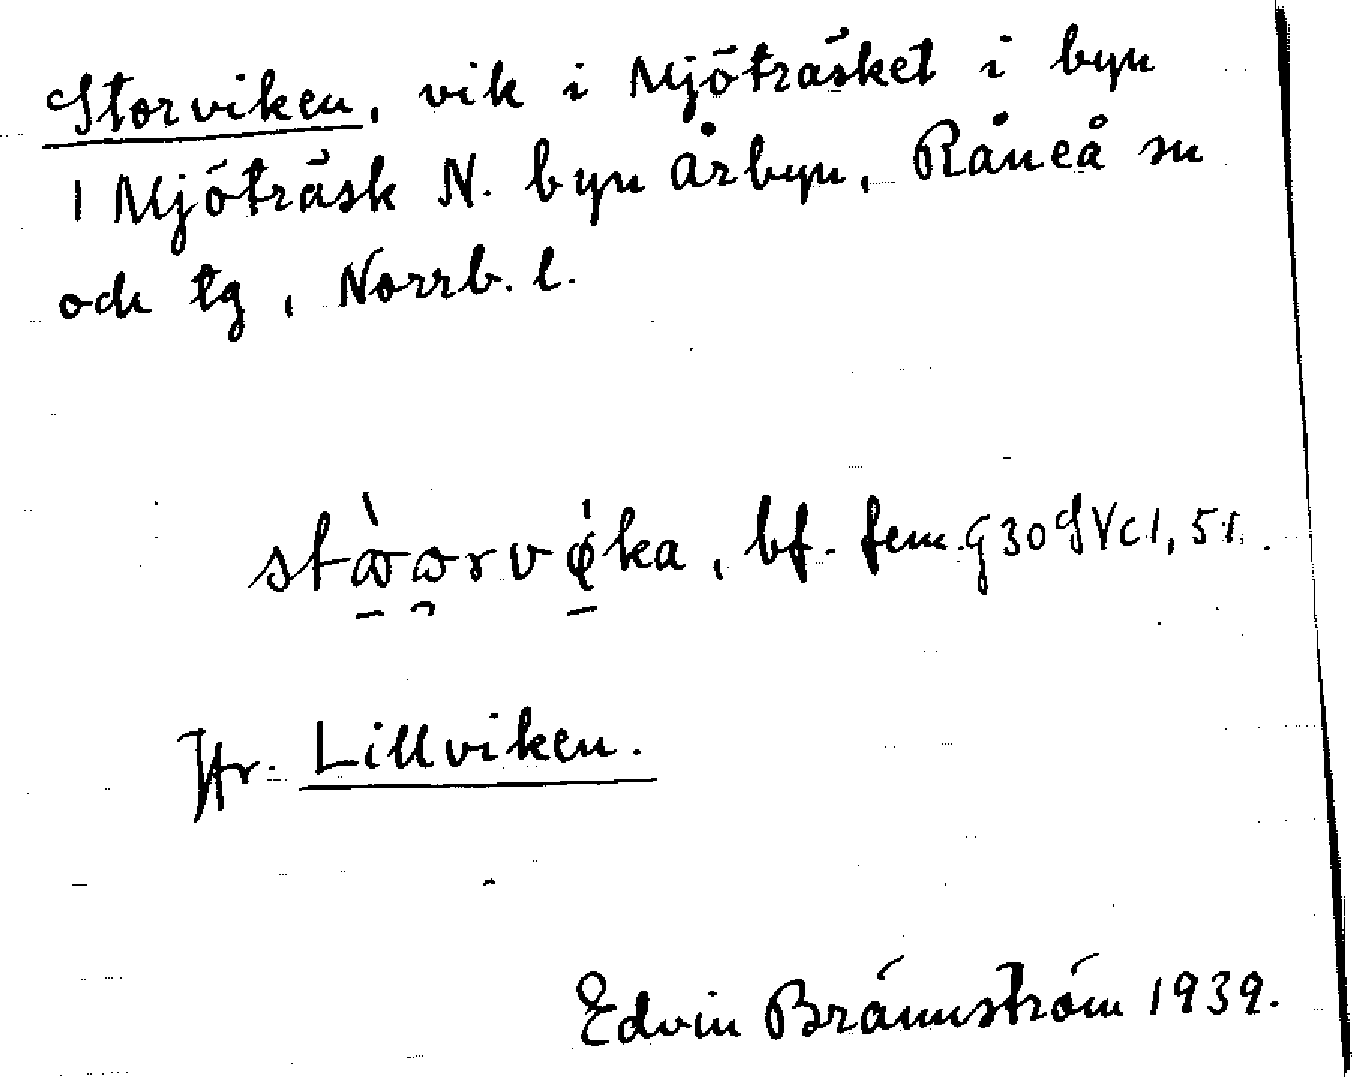 Storviken, vik i Mjöträsket i byn
1 Mjöträsk N. byn Årbyn, Råneå sn
och tg, Norrb. l.
bf. fem. G30SVc1, 51.
Jfr. Lillviken.
Edvin Brännström 1939.